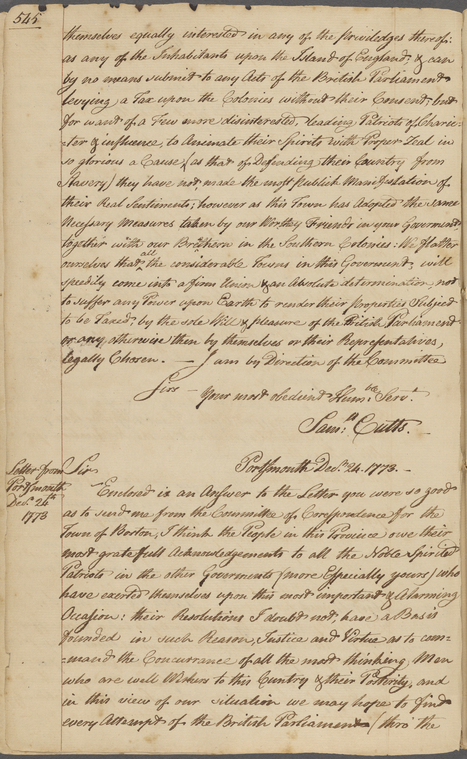 545
themselves equally interested in any of the priviledges thereof:
as any of the Inhabitants upon the Island of England, & can
by no means submit to any Acts of the British Parliament
levying a Tax upon the Colonies without their Consent; but
for want of a Few more disinterested, leading Patriots of Charac-
-ter & influence, to Annimate their Spirits with Proper Zeal in
so glorious a Cause (as that of Defending their Country from
Slavery) they have not made the most Publick Manifestation of
their Real Sentiments; however as this Town has Adopted the same
Necessary Measures taken by our Worthy Friends in your Goverment,
together with our Brethern in the Southern Colonies: We flatter
ourselves that all the considerable Towns in this Goverment, will
speedily come into a firm Union & an Absolute determination, not
to suffer any Power upon Earth to render their Properties Subject
to be Taxed; by the sole Will & pleasure of the British Parliament
or any otherwise then by themselves or their Representatives,
legally Chosen. — I am by Direction of the Committee
Sirs — Your most obedient Humbe. Servt.
Samll. Cutts. —
Letter from
Portsmouth
Decr. 24th
1773
Portsmouth Decr. 24. 1773. —
Sir
Enclosed is an Answer to the Letter you were so good
as to send me from the Committee of Correspondence for the
Town of Boston, I think the People in this Province owe their
most gratefull Acknowledgements to all the Noble Spirited
Patriots in the other Goverments (more Especially yours) who
have exerted themselves upon this most important & Alarming
Occasion: their Resolutions I doubt not, have a Basis
founded in such Reason, Justice and Virtue as to com-
-mand the Concurrance of all the most thinking Men
who are well Wishers to this Cuntry & their Posterity, and
in this view of our situation we may hope to find
every Attempt of the British Parliament (thro' the